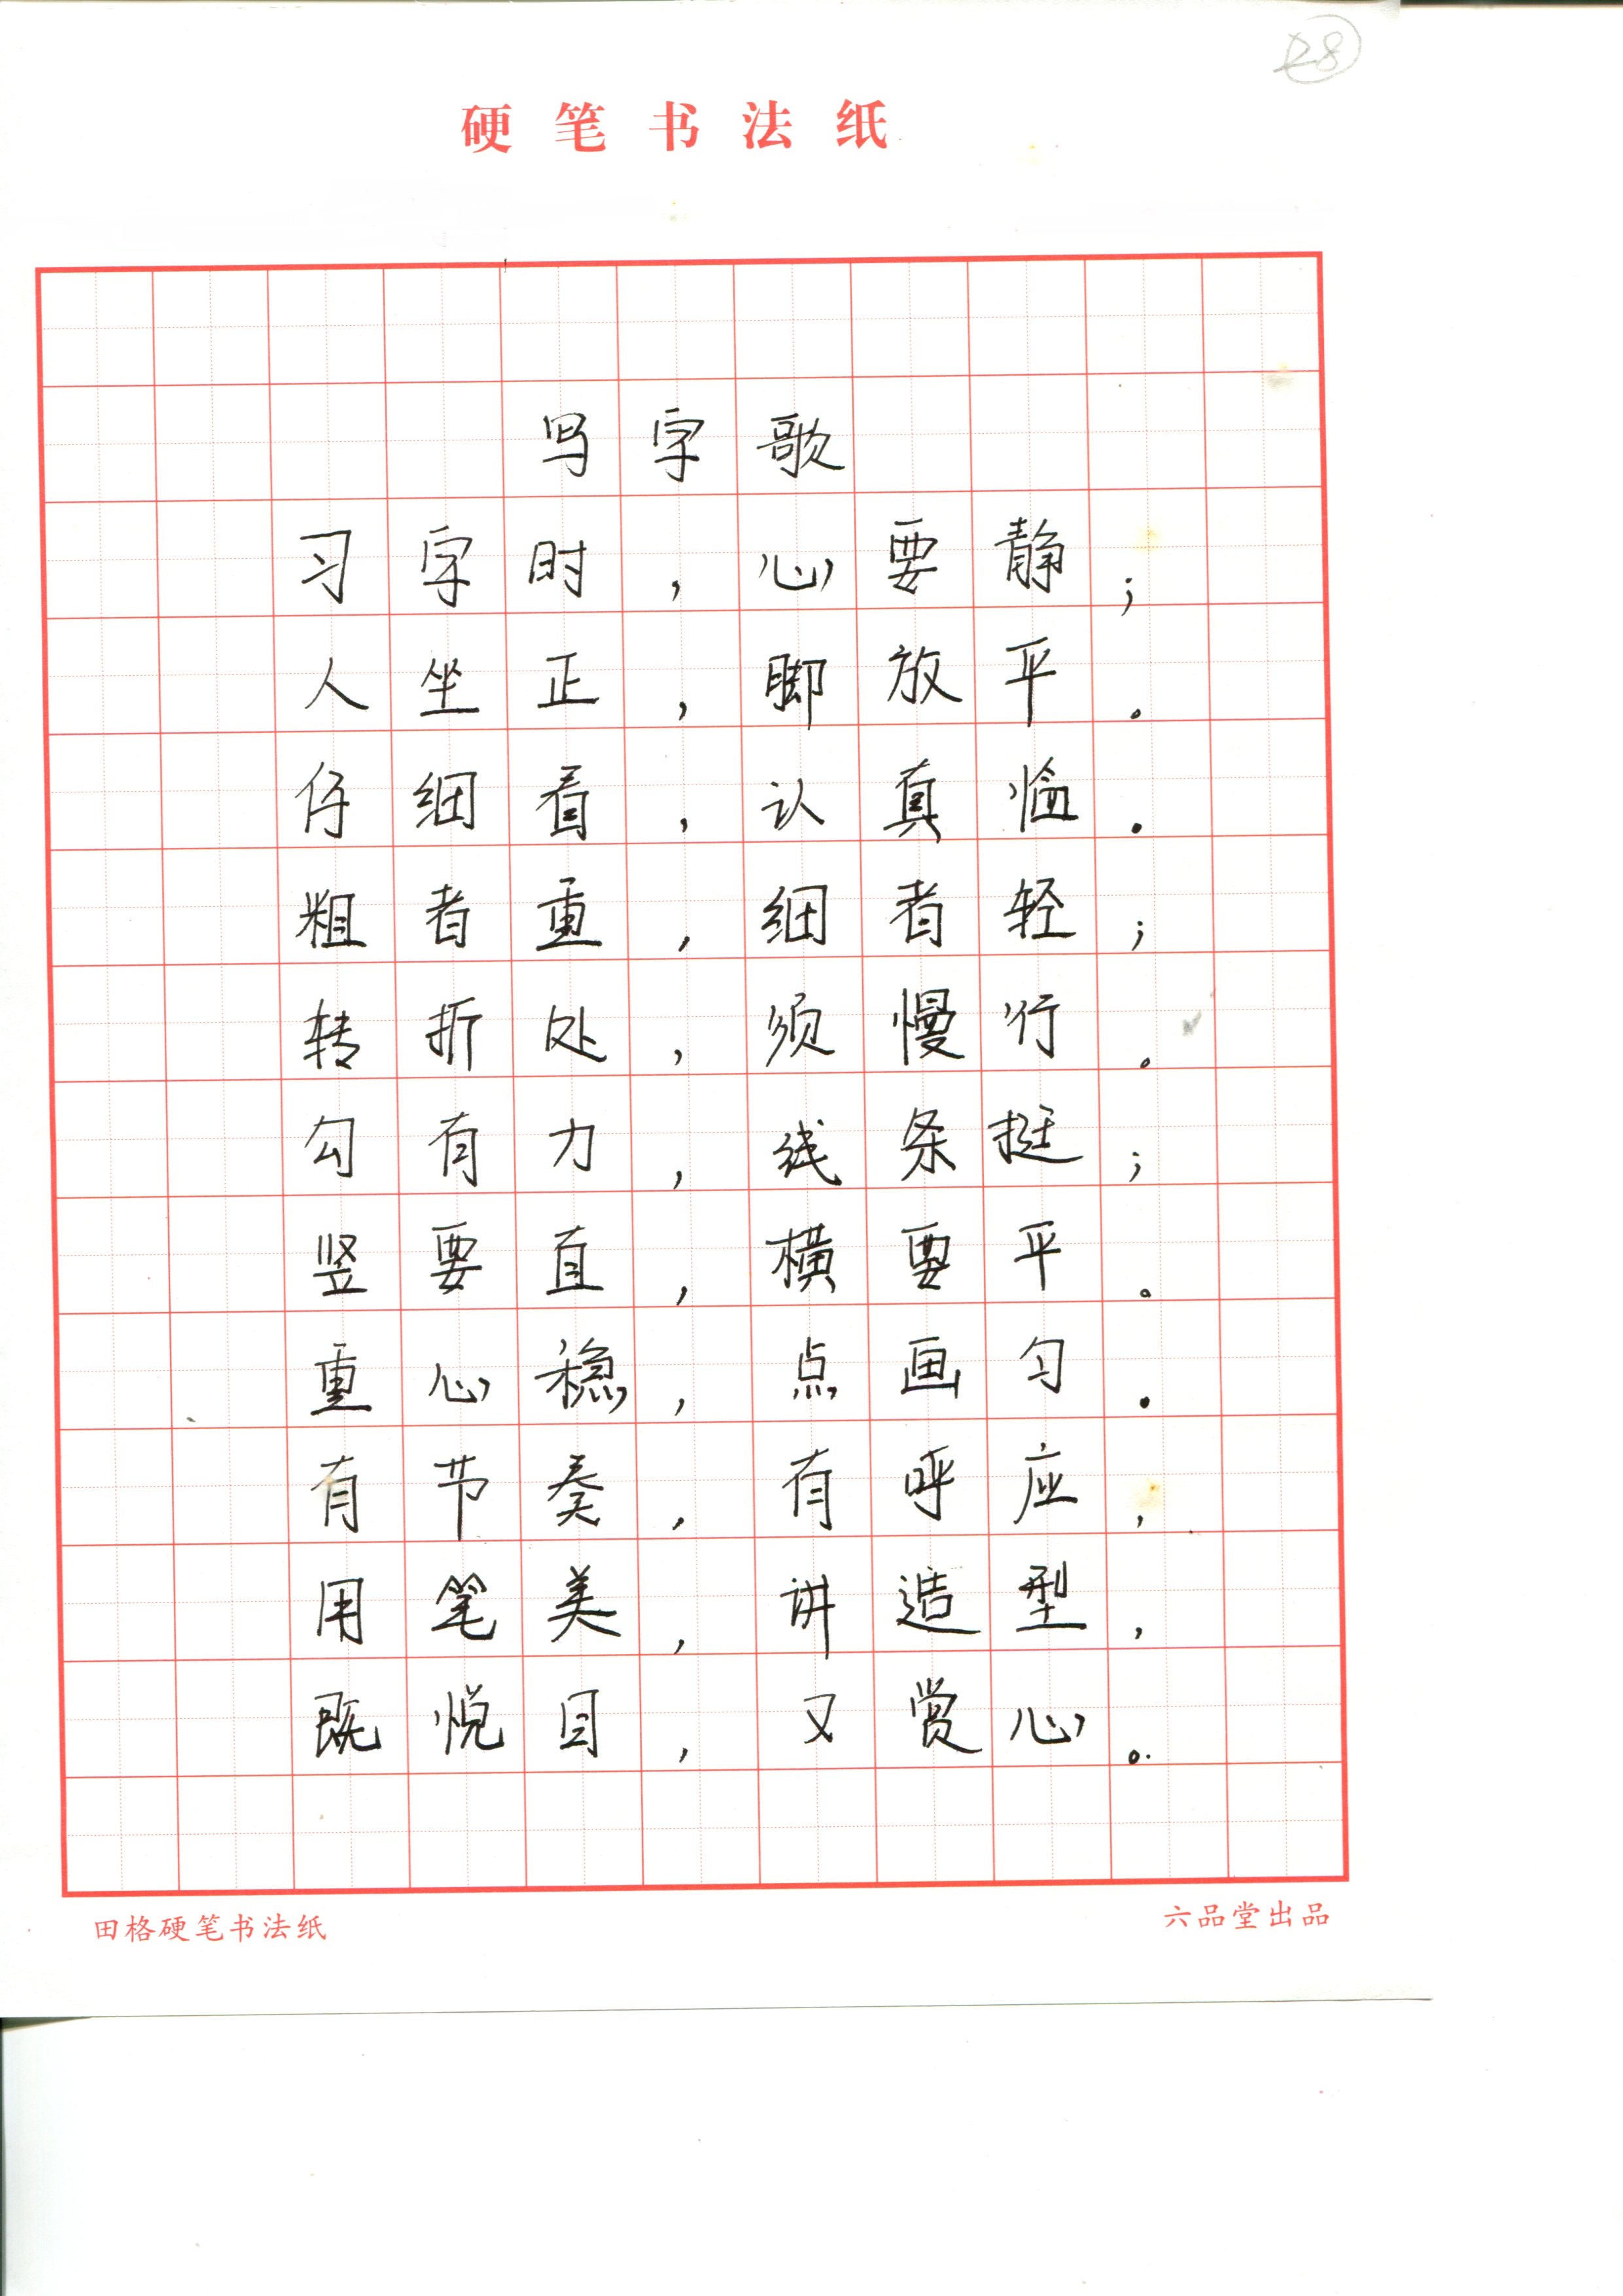 28
硬笔书法纸
写字歌
习字时，心要静；
人坐正，脚放平。
仔细看，认真恤。
粗者重，细者轻；
转折处，须慢行。
勾有力，线条挺；
竖要直，横要平。
重心稳，点画匀。
有节奏，有呼应，
用笔美，讲造型，
既悦目，又赏心。
田格硬笔书法纸
六品堂出品